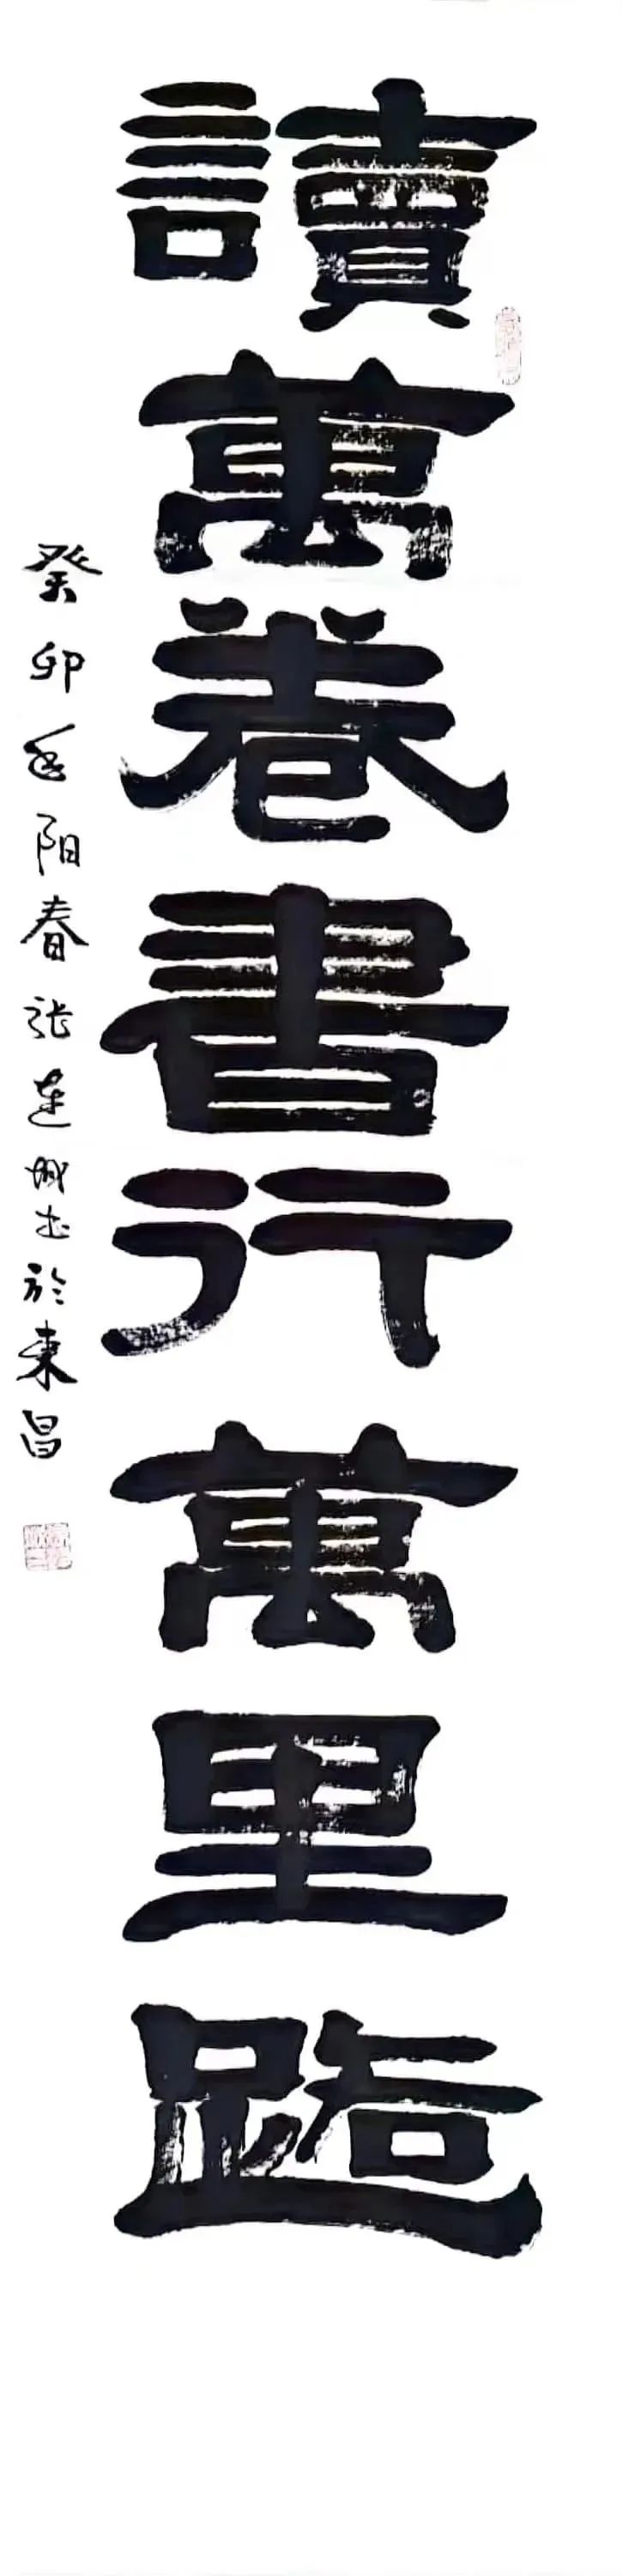 讀萬卷書行萬里路
癸卯年阳春张连城书於東昌